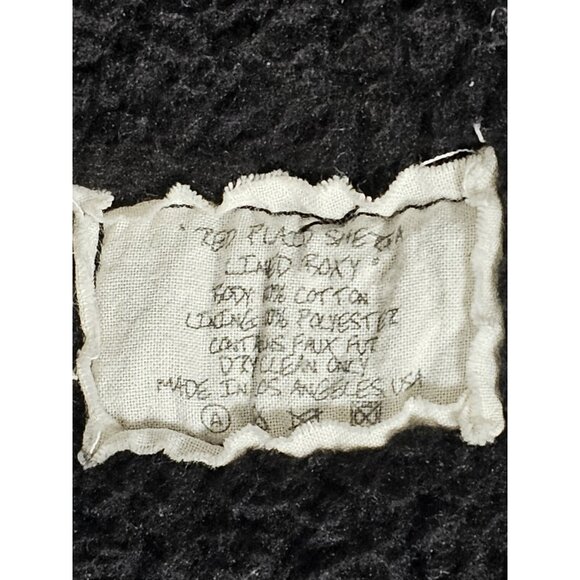 "RED PLAID SHERPA
LINED BOXY"
BODY 100% COTTON
LINING 100% POLYESTER
CONTAINS FAUX FUR
DRY CLEAN ONLY
MADE IN LOS ANGELES, USA
A